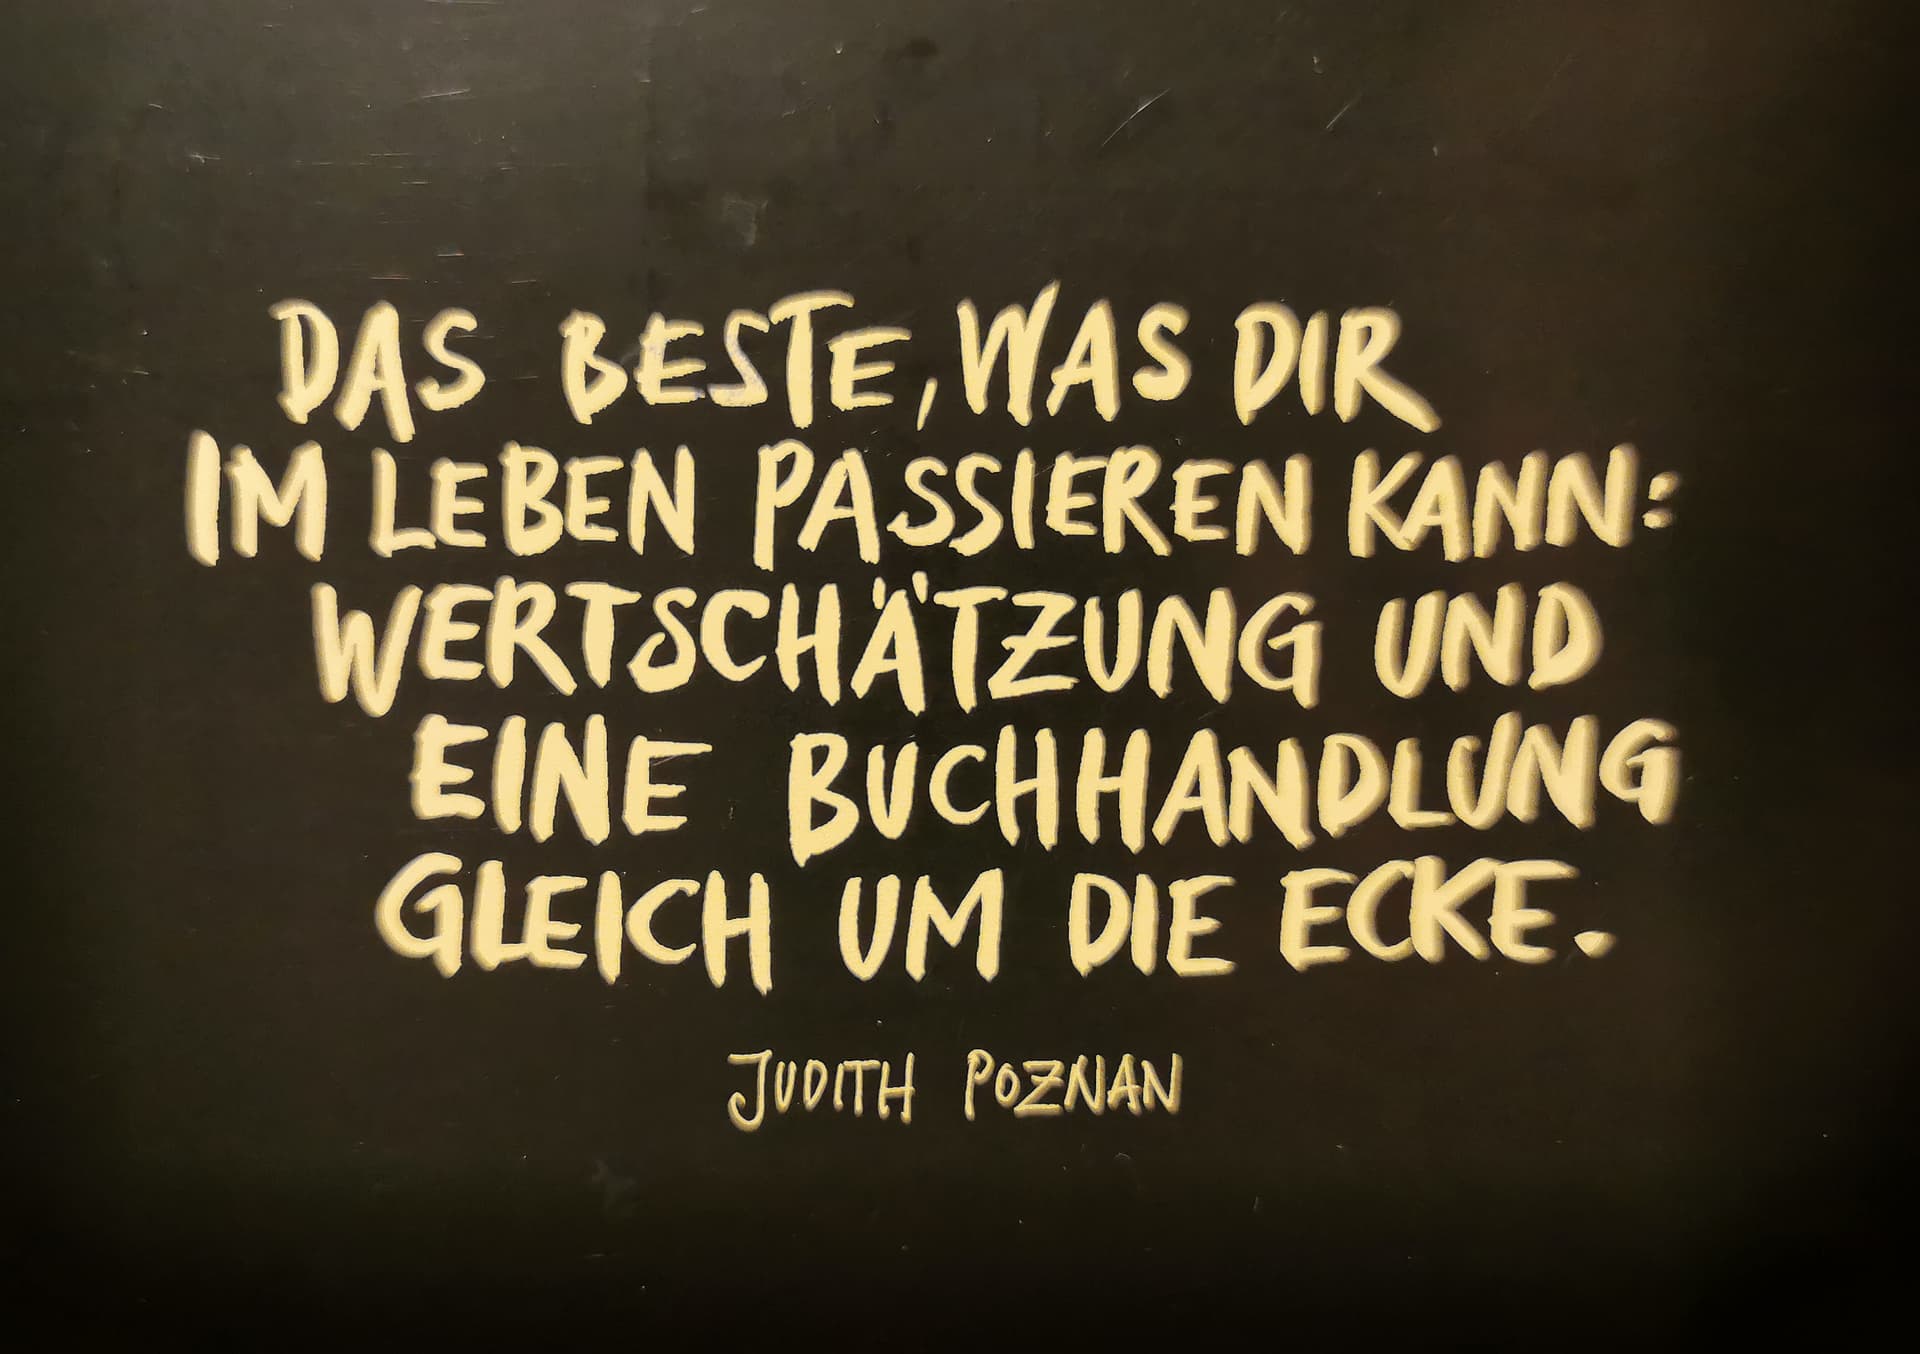 DAS BESTE, WAS DIR
IM LEBEN PASSIEREN KANN:
WERTSCHÄTZUNG UND
EINE BUCHHANDLUNG
GLEICH UM DIE ECKE.
JUDITH POZNAN